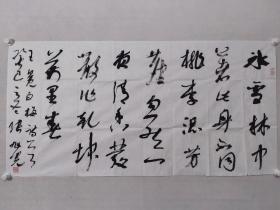 冰雪林中
著此身不同
桃李混芳
塵忽然一
夜清香發
散作乾坤
萬里春
王冕白梅詩一首